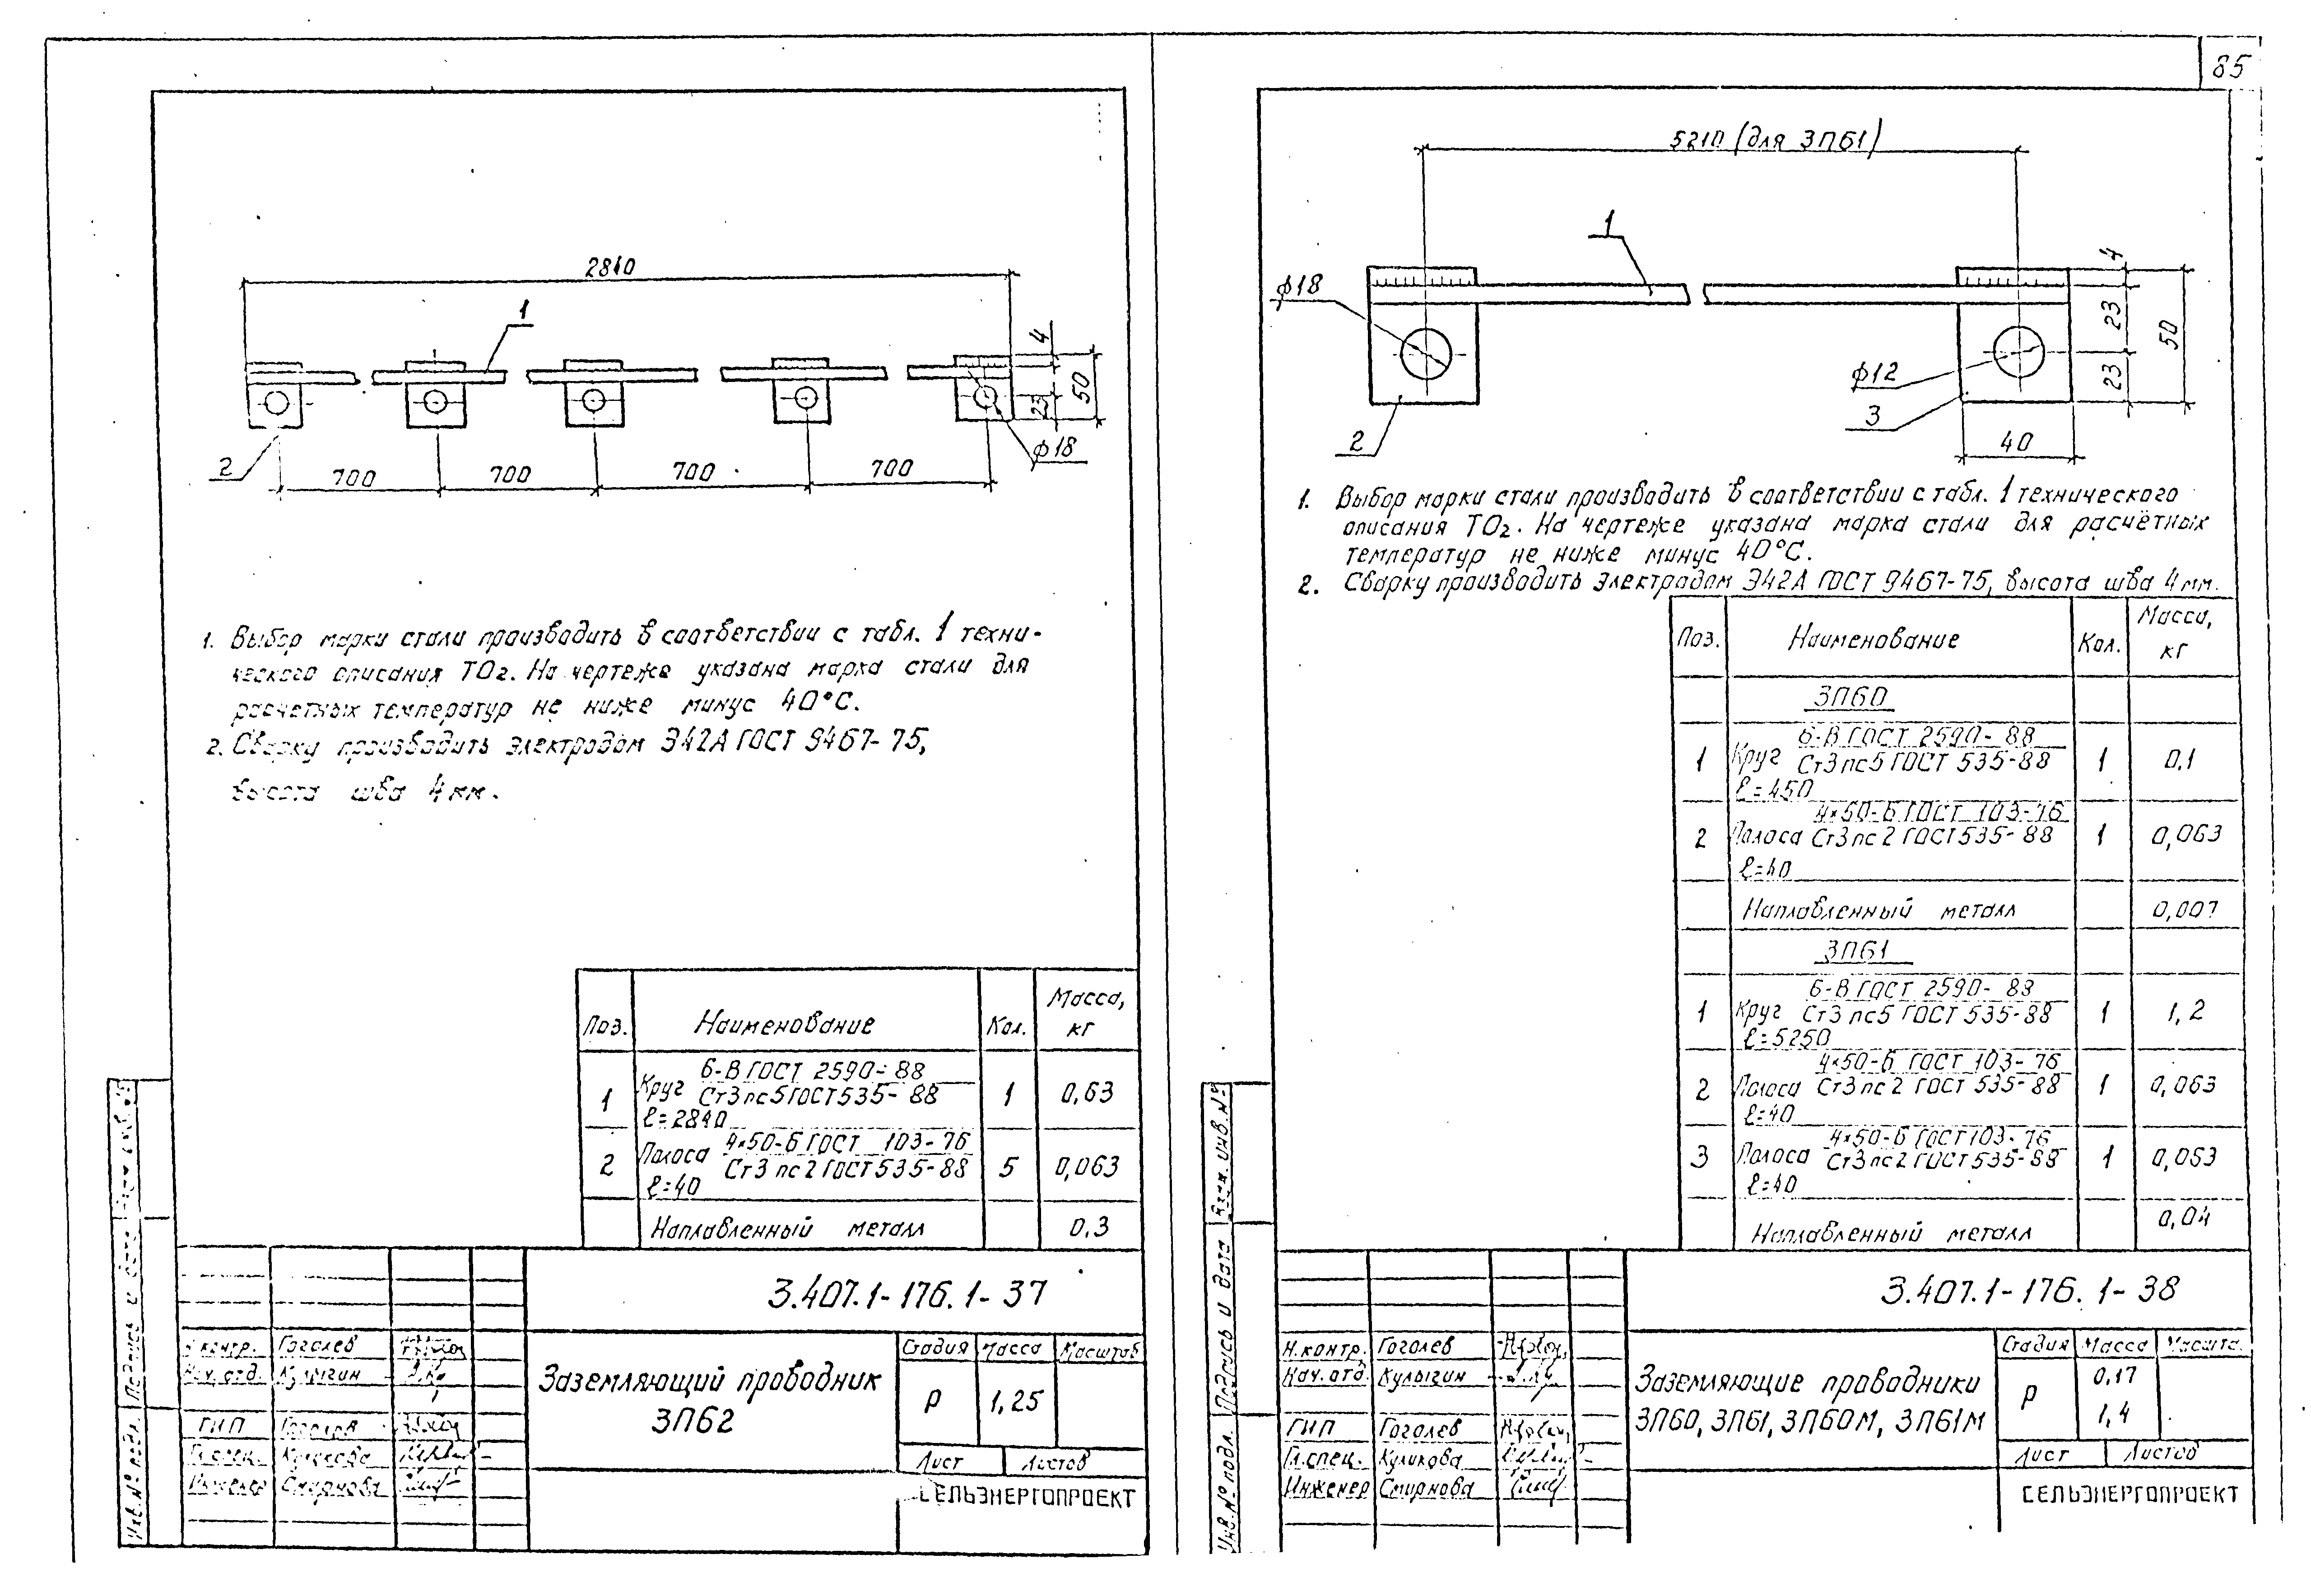 85
2840
1
4
50
23
ф18
2
700
700
700
700
1. Выбор марки стали производить в соответствии с табл. 1 техни-
ческого описания ТО2. На чертеже указана марка стали для
расчетных температур не ниже минус 40°С.
2. Сварку производить электродом Э42А ГОСТ 9467-75,
высота шва 4мм.
Поз. Наименование Кол. Масса, кг
6-В ГОСТ 2590-88
1 Круг Ст3пс5 ГОСТ 535-88 1 0,63
ℓ=2840
4×50-Б ГОСТ 103-76
2 Полоса Ст3пс2 ГОСТ 535-88 5 0,063
ℓ=40
Наплавленный металл 0,3
3.407.1-176.1-37
Н.контр. Гоголев
Нач.отд. Кулыгин
ГИП Гоголев
Гл.спец. Куликова
Инженер Смирнова
Заземляющий проводник
ЗП62
Стадия Масса Масштаб
Р 1,25
Лист Листов
СЕЛЬЭНЕРГОПРОЕКТ
Подпись и дата
Инв.№ подл.
5210 (для ЗП61)
1
ф18
4
23
50
23
ф12
3
2
40
1. Выбор марки стали производить в соответствии с табл. 1 технического
описания ТО2. На чертеже указана марка стали для расчётных
температур не ниже минус 40°С.
2. Сварку производить электродом Э42А ГОСТ 9467-75, высота шва 4мм.
Поз. Наименование Кол. Масса, кг
ЗП60
6-В ГОСТ 2590-88
1 Круг Ст3пс5 ГОСТ 535-88 1 0,1
ℓ=450
4×50-Б ГОСТ 103-76
2 Полоса Ст3пс2 ГОСТ 535-88 1 0,063
ℓ=40
Наплавленный металл 0,007
ЗП61
6-В ГОСТ 2590-88
1 Круг Ст3пс5 ГОСТ 535-88 1 1,2
ℓ=5250
4×50-Б ГОСТ 103-76
2 Полоса Ст3пс2 ГОСТ 535-88 1 0,063
ℓ=40
4×50-Б ГОСТ 103-76
3 Полоса Ст3пс2 ГОСТ 535-88 1 0,063
ℓ=40
Наплавленный металл 0,04
3.407.1-176.1-38
Н.контр. Гоголев
Нач.отд. Кулыгин
ГИП Гоголев
Гл.спец. Куликова
Инженер Смирнова
Заземляющие проводники
ЗП60, ЗП61, ЗП60М, ЗП61М
Стадия Масса Масшта.
Р 0,17
1,4
Лист Листов
СЕЛЬЭНЕРГОПРОЕКТ
Взам. инв.№
Подпись и дата
Инв.№ подл.